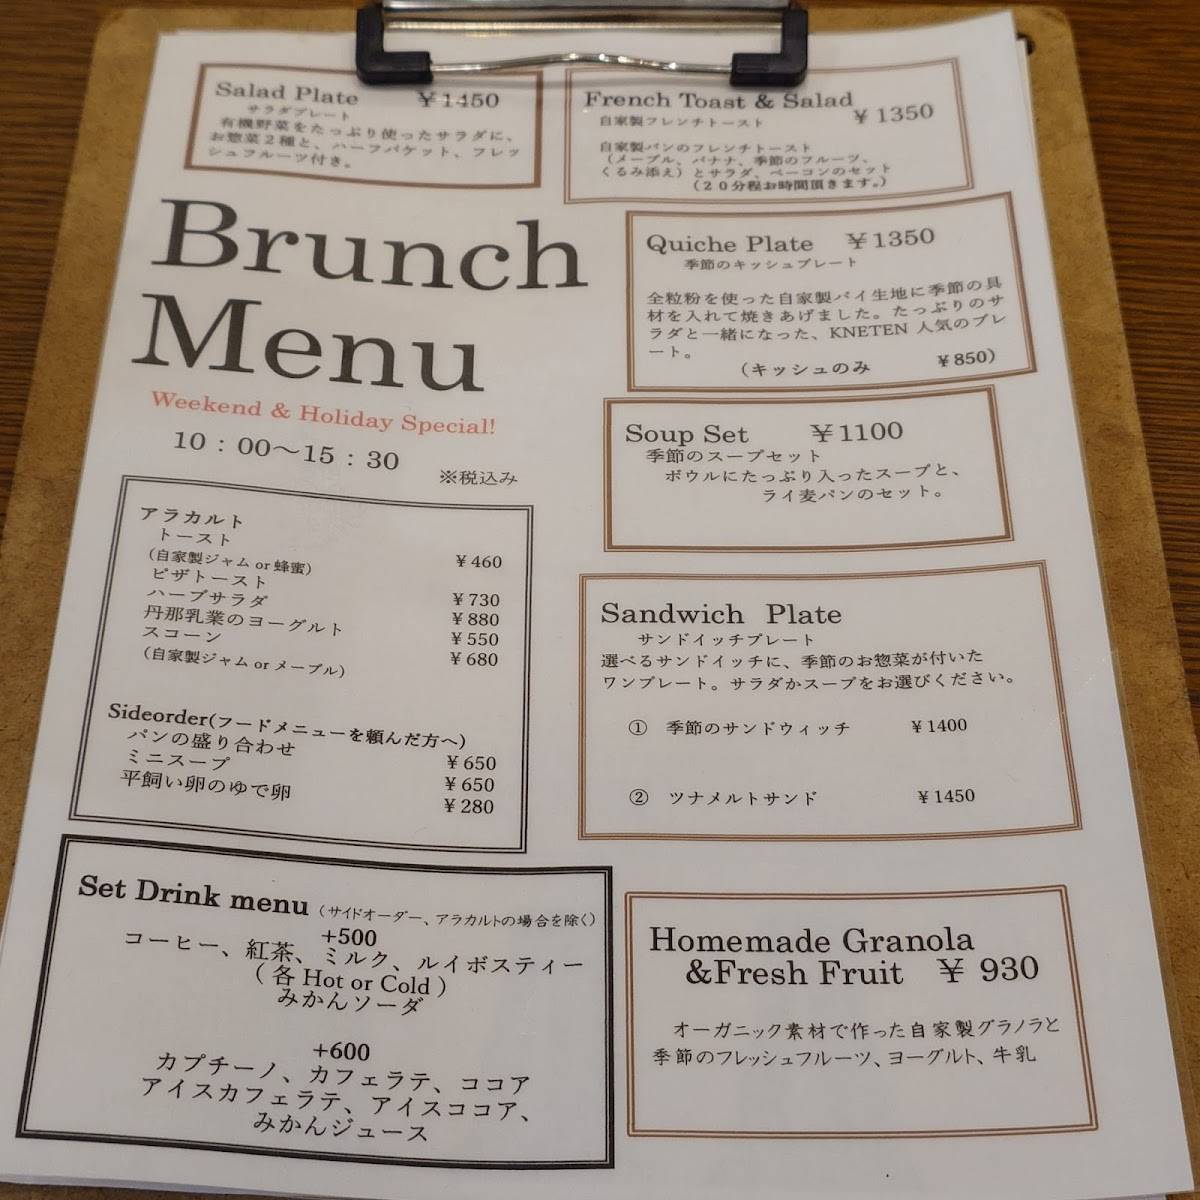 Salad Plate ¥1450
サラダプレート
有機野菜をたっぷり使ったサラダに、
お惣菜2種と、ハーフバケット、フレッ
シュフルーツ付き。
French Toast & Salad ¥1350
自家製フレンチトースト
自家製パンのフレンチトースト
(メープル、バナナ、季節のフルーツ、
くるみ添え)とサラダ、ベーコンのセット
(20分程お時間頂きます。)
Brunch
Menu
Weekend & Holiday Special!
10:00～15:30
※税込み
Quiche Plate ¥1350
季節のキッシュプレート
全粒粉を使った自家製パイ生地に季節の具
材を入れて焼きあげました。たっぷりのサ
ラダと一緒になった、KNETEN 人気のプレ
ート。
(キッシュのみ ¥850)
Soup Set ¥1100
季節のスープセット
ボウルにたっぷり入ったスープと、
ライ麦パンのセット。
アラカルト
トースト
(自家製ジャム or 蜂蜜) ¥460
ピザトースト ¥730
ハーブサラダ ¥880
丹那乳業のヨーグルト ¥550
スコーン ¥680
(自家製ジャム or メープル)
Sideorder(フードメニューを頼んだ方へ)
パンの盛り合わせ ¥650
ミニスープ ¥650
平飼い卵のゆで卵 ¥280
Sandwich Plate
サンドイッチプレート
選べるサンドイッチに、季節のお惣菜が付いた
ワンプレート。サラダかスープをお選びください。
① 季節のサンドウィッチ ¥1400
② ツナメルトサンド ¥1450
Set Drink menu (サイドオーダー、アラカルトの場合を除く)
+500
コーヒー、紅茶、ミルク、ルイボスティー
(各 Hot or Cold)
みかんソーダ
+600
カプチーノ、カフェラテ、ココア
アイスカフェラテ、アイスココア、
みかんジュース
Homemade Granola
&Fresh Fruit ¥ 930
オーガニック素材で作った自家製グラノラと
季節のフレッシュフルーツ、ヨーグルト、牛乳